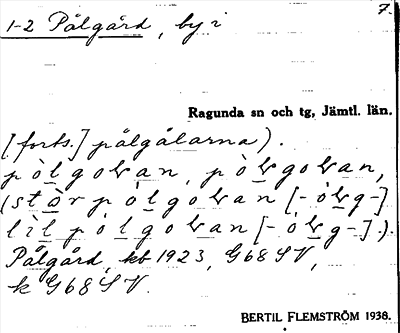 7.
1-2 Pålgård, by i
Ragunda sn och tg, Jämtl. län.
[forts.] pålgålarna).
pòlgoƚan, pòƚgoƚan,
(stòr pòlgoƚan [-òƚg-]
lìl pòlgoƚan [-òƚg-]).
Pålgård, kb 1923, G68 SV,
k G68 SV.
BERTIL FLEMSTRÖM 1938.